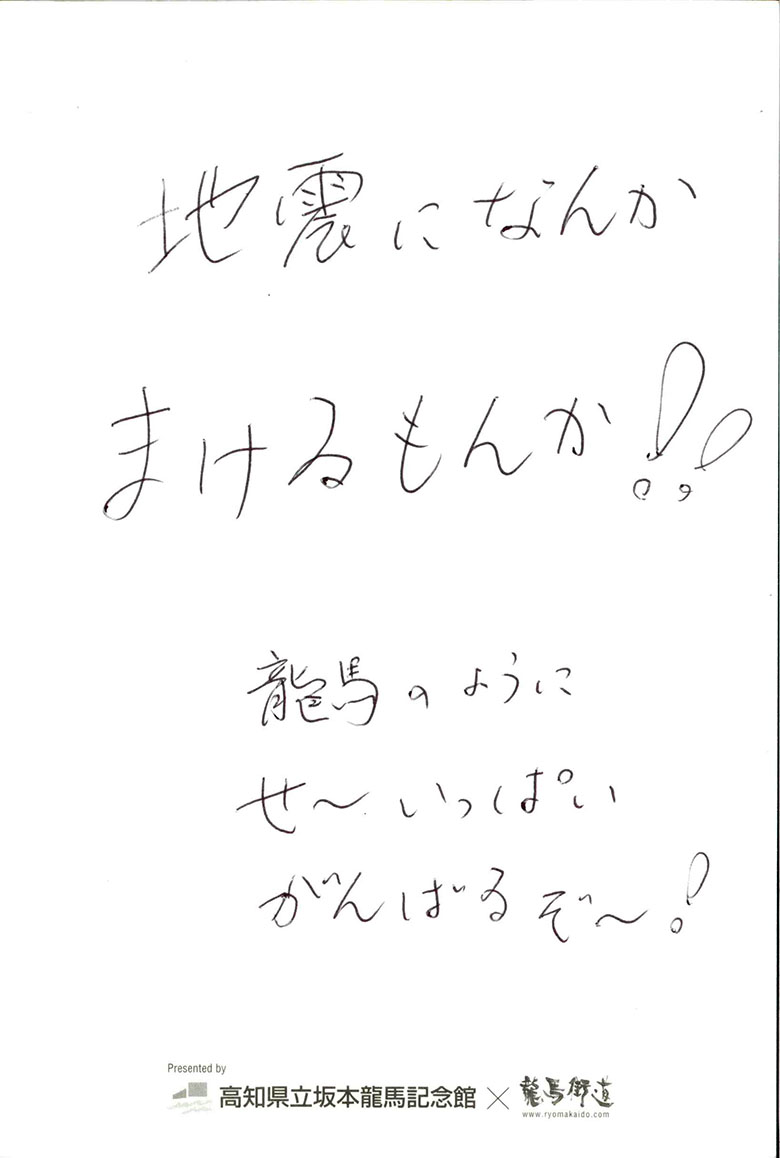 地震になんか
まけるもんか!!
龍馬のように
せ〜いっぱい
がんばるぞ〜!
Presented by
高知県立坂本龍馬記念館 × 龍馬街道
www.ryomakaido.com